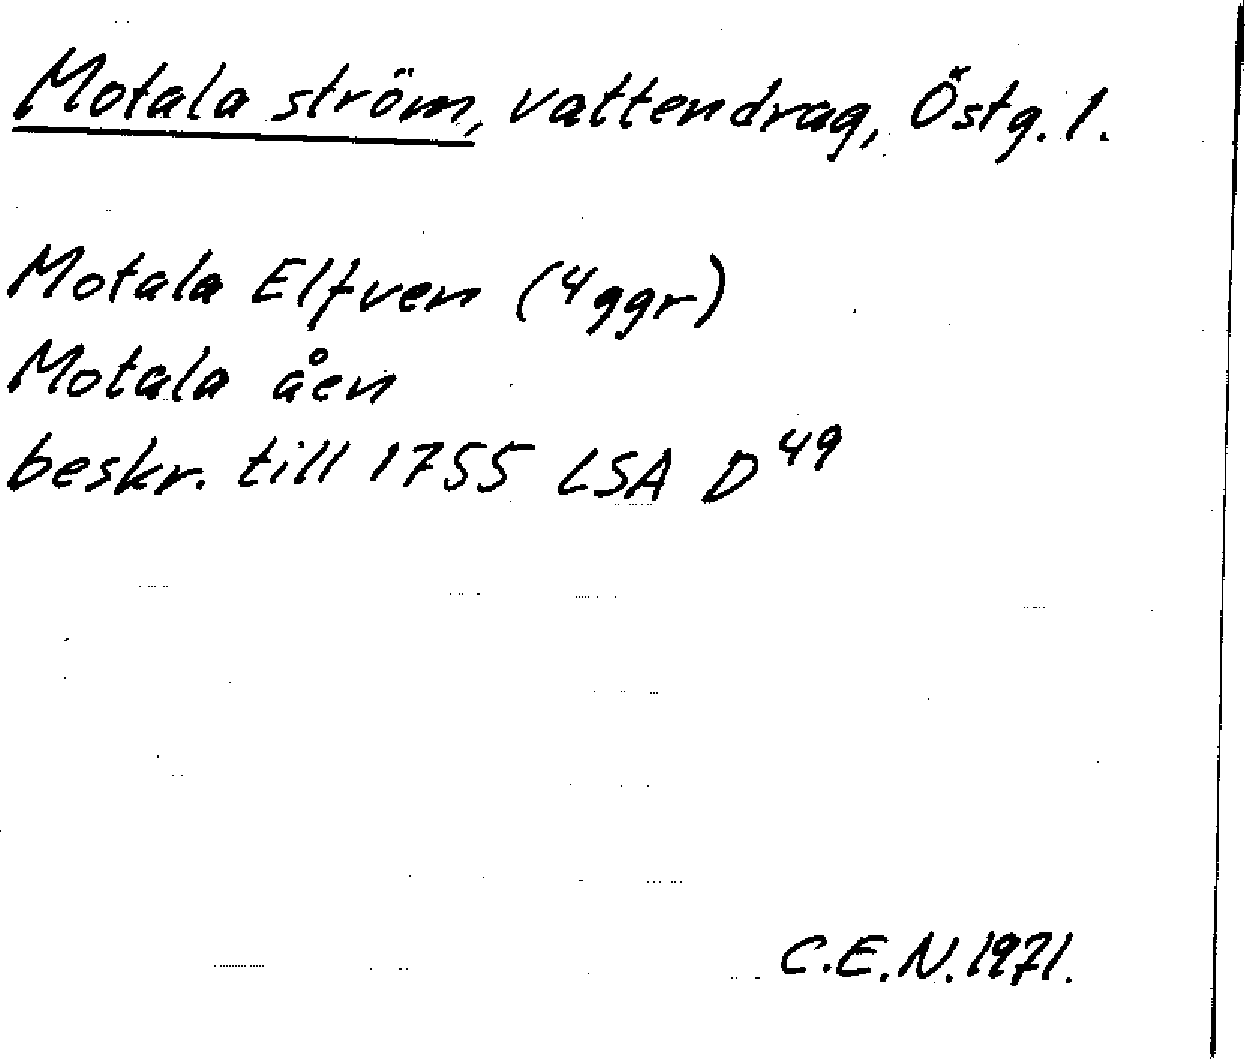 Motala ström, vattendrag, Östg. l.
Motala Elfven (4 ggr)
Motala åen
beskr. till 1755 LSA D 49
C.E.N. 1971.